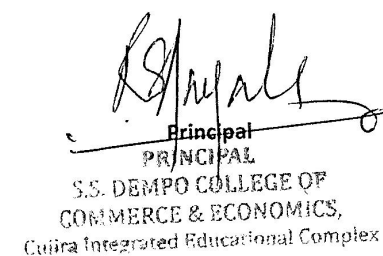 Principal
PRINCIPAL
S.S. DEMPO COLLEGE OF
COMMERCE & ECONOMICS,
Cujira Integrated Educational Complex